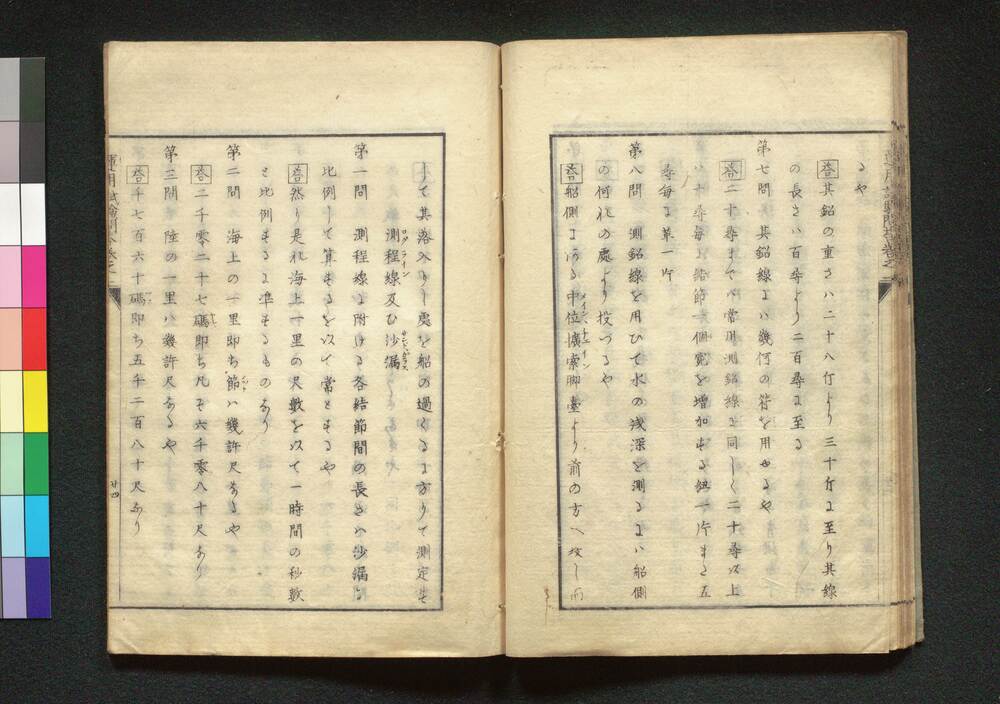 るや
答 其鉛の重さハ二十八斤より三十斤に至り其線
の長さハ百尋より二百尋に至る
第七問 其鉛線にハ幾何の符を用ゆるや
答 二十尋までハ常用測鉛線と同しく二十尋以上
ハ十尋毎に結節一個宛を増加する
尋毎に革一片
第八問 測鉛線を用ひて水の浅深を測るにハ船側
の何れの處より投つるや
答 船側にある中位 脚臺より前の方へ投し而
して其落入りし處を船の過くるに方りて測定す
測程線及ひ沙漏
第一問 測程線に附ける各結節間の長さハ沙漏に
比例して算するを以て當とするや
答 然り是れ海上一里の尺數を以て一時間の秒數
と比例するに準するものなり
第二問 海上の一里即ち節ハ幾許尺なるや
答 二千零二十七碼即ち凡そ六千零八十尺なり
第三問 陸の一里ハ幾許尺なるや
答 千七百六十碼即ち五千二百八十尺なり
廿四